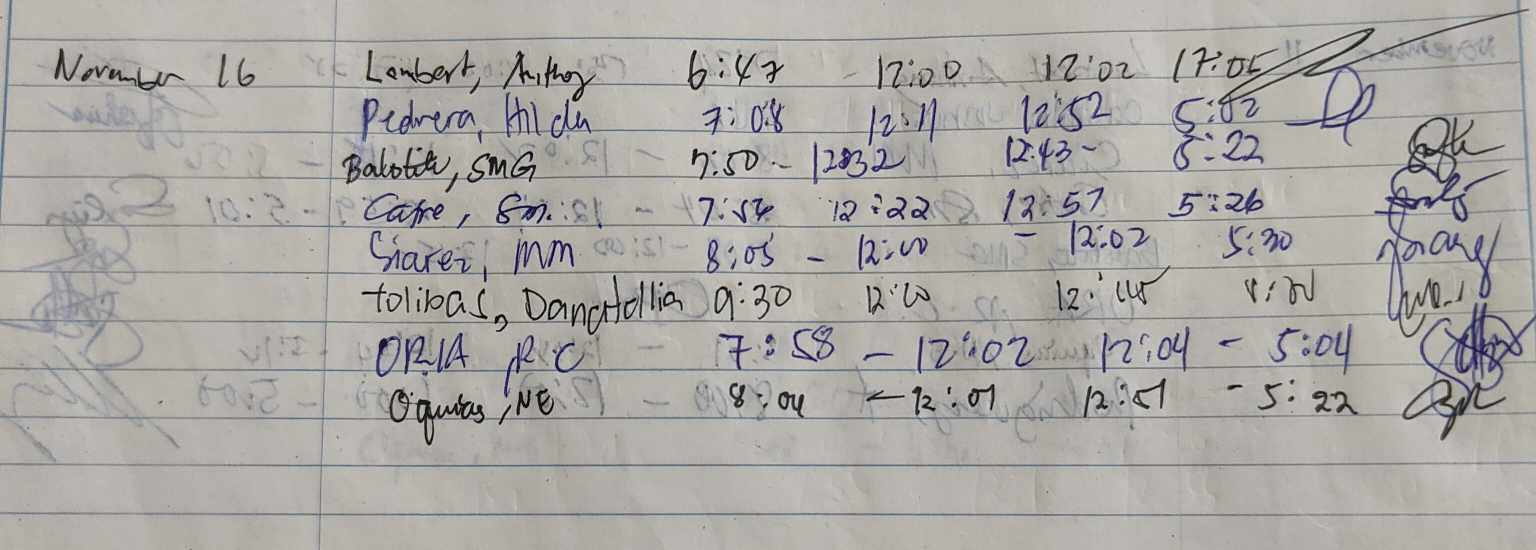 November 16 Lambert, Anthony 6:47 - 12:00 12:02 17:05
Pedrera, Hilda 7:08 12:11 12:52 5:02
SMG 7:50 - 12:32 12:43 - 5:22
Cañe, Sm. 7:54 12:22 12:57 5:26
Siarez, MM 8:05 - 12:00 - 12:02 5:30
Tolibas, Dana 9:30 12:10 12:45
ORIA, RC 7:58 - 12:02 12:04 - 5:04
Oquias, NE 8:04 - 12:01 12:51 - 5:22